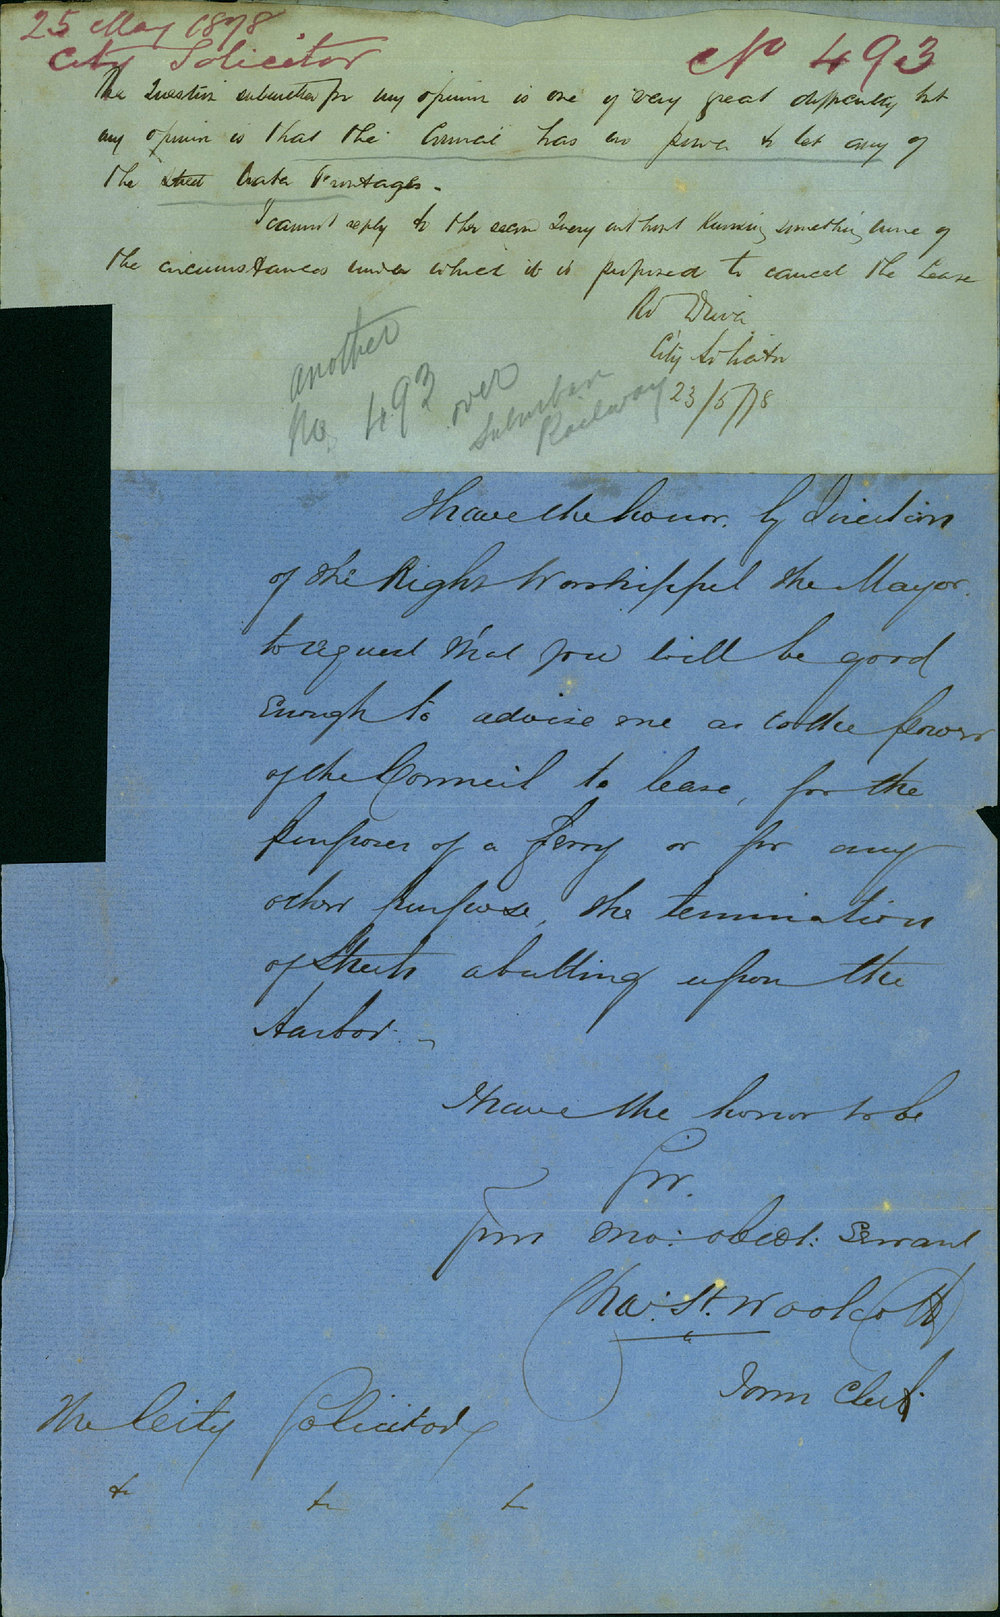 25 May 1878
City Solicitor
No 493
The Question submitted for my opinion is one of very great difficulty but
my opinion is that the Council has no power to let any of
the street Water Frontages.
I cannot reply to the Query without knowing something more of
the circumstances under which it is proposed to cancel the Lease
Rd Driver
City Solicitor
23/5/78
another
No. 493 over
Suburban
Railway
I have the honor, by direction
of the Right Worshipful the Mayor
to request that you will be good
enough to advise me as to the powers
of the Council to lease, for the
purposes of a Ferry or for any
other purpose, the termination
of Streets abutting upon the
Harbor. -
I have the honor to be
Sir.
Your mo: obedt: Servant
Chas. H. Woolcott
Town Clerk
The City Solicitor
&c &c &c